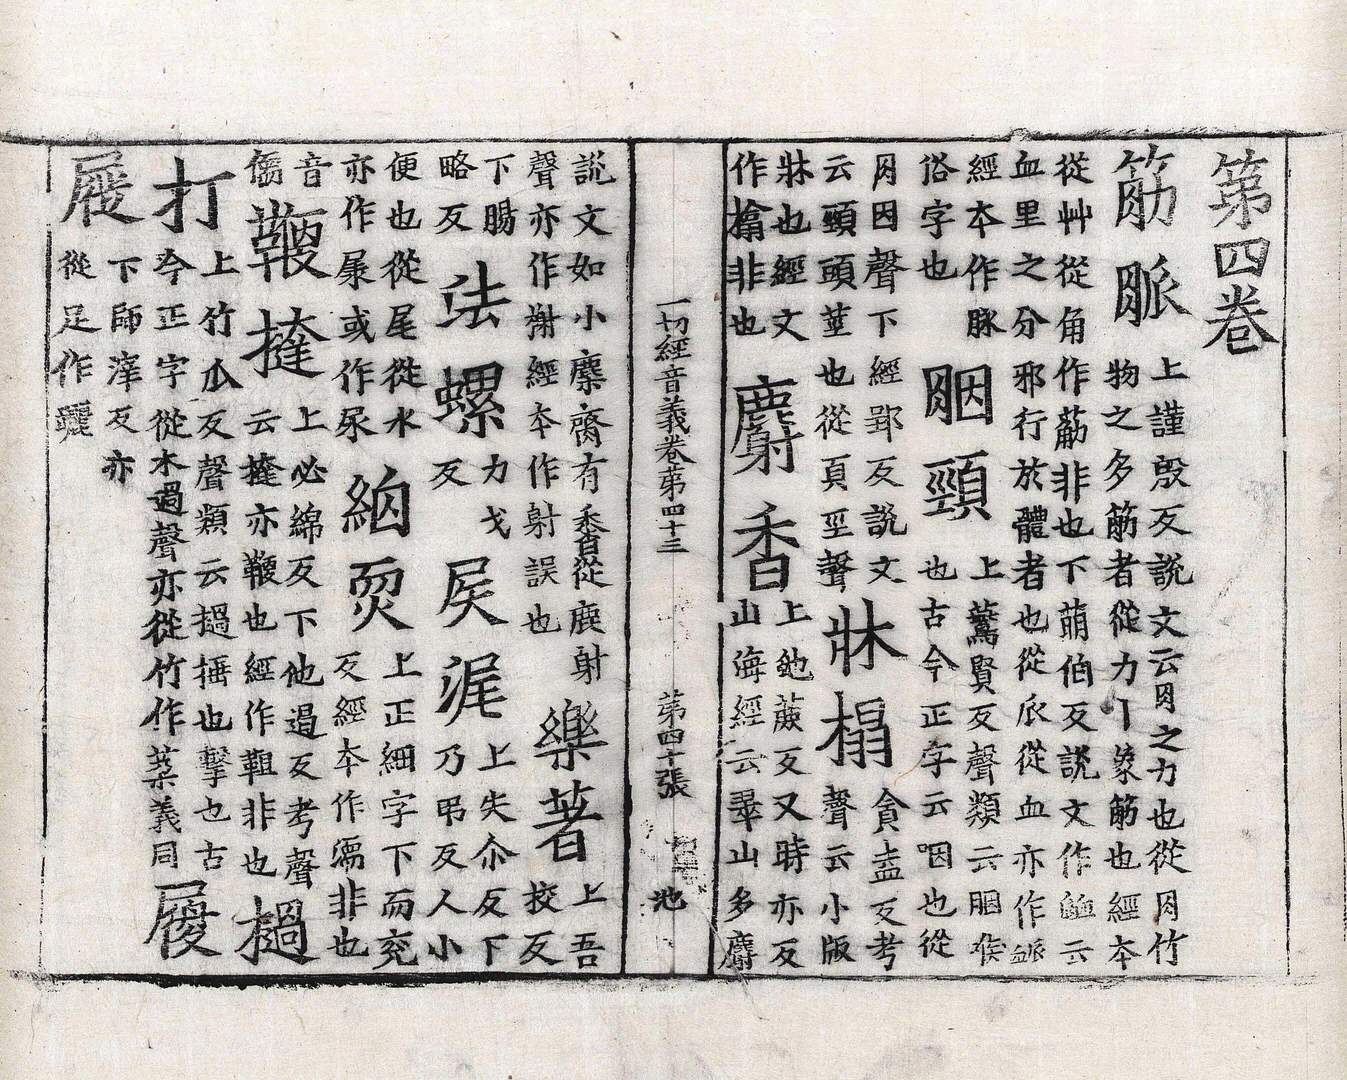 第四卷
筋脈
上謹殷反說文云肉之力也從肉竹
物之多筋者從力丨象筋也經本
從艸從角作葋非也下萌伯反說文作䘑云
血里之分邪行於體者也從𠂢從血亦作
經本作脉
俗字也
胭頸
上鷰賢反聲類云胭喉
也古今正字云咽也從
肉因聲下經郢反說文
云頸頭莖也從頁巠聲
牀榻
貪盍反考
聲云小版
牀也經文
作 非也
麝香
上虵蔗反又時亦反
山海經云翠山多麝
一切經音義卷第四十三 第四十張 池
說文如小麋臍有香從鹿射
聲亦作 經本作射誤也
樂著
上吾
挍反
下賜
略反
法螺
力戈
反
屎浘
上失尒反下
乃弔反人小
便也從尾從水
亦作 或作尿
細耎
上正細字下而兖
反經本作濡非也
音
儒
鞭撻
上必綿反下他過反考聲
云撻亦鞭也經作䩢非也
檛
打
上竹瓜反聲類云撾捶也擊也古
今正字從木過聲亦從竹作 義同
履
屣
下師滓反亦
從足作躧